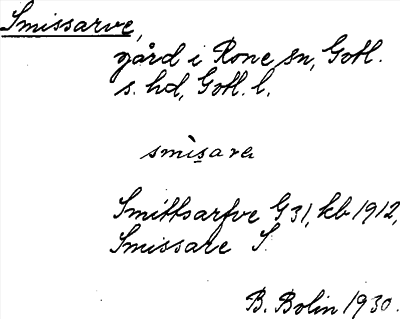 Smissarve,
gård i Rone sn, Gotl.
s. hd, Gotl. l.
smìs̱arvα
Smittsarfve G 31, kb 1912,
Smissare S.
B. Bolin 1930.